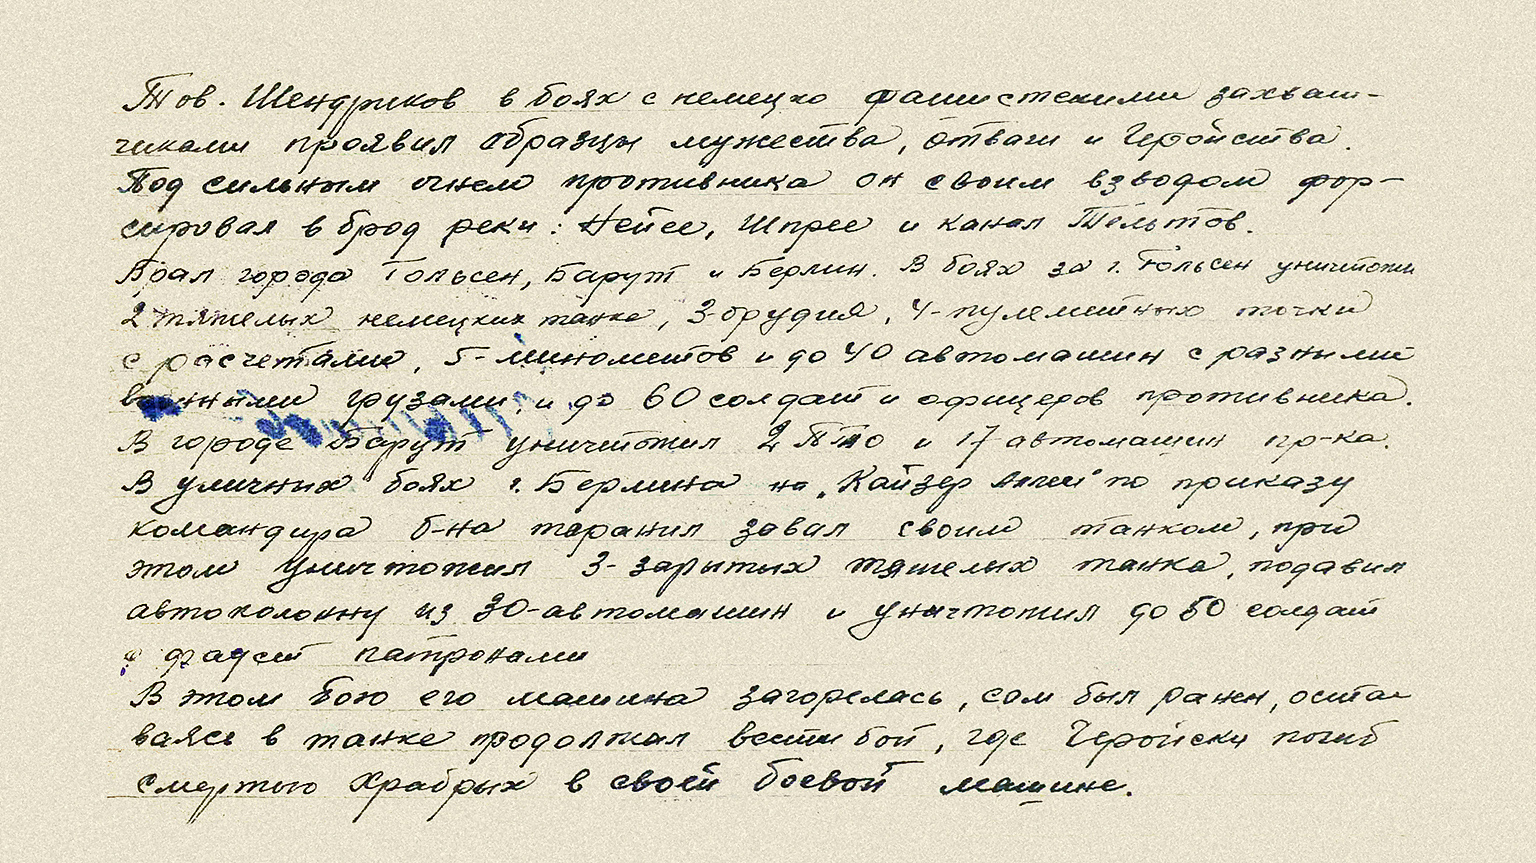 Тов. Шендриков в боях с немецко фашистскими захват-
чиками проявил образцы мужества, отваги и Геройства.
Под сильным огнем противника он своим взводом фор-
сировал в брод реки: Нейсе, Шпрее и канал Тельтов.
Брал города Гольсен, Барут и Берлин. В боях за г. Гольсен уничтожил
2 тяжелых немецких танка, 3-орудия, 4-пулеметных точки
с расчетами, 5-минометов и до 40 автомашин с разными
военными грузами, и до 60 солдат и офицеров противника.
В городе Барут уничтожил 2 ПТО и 17-автомашин пр-ка.
В уличных боях г. Берлина на „Кайзер Аллей" по приказу
командира б-на таранил завал своим танком, при
этом уничтожил 3-зарытых тяжелых танка, подавил
автоколонну из 30-автомашин и уничтожил до 50 солдат
с патронами
В этом бою его машина загорелась, сам был ранен, оста-
ваясь в танке продолжал вести бой, где Геройски погиб
смертью храбрых в своей боевой машине.